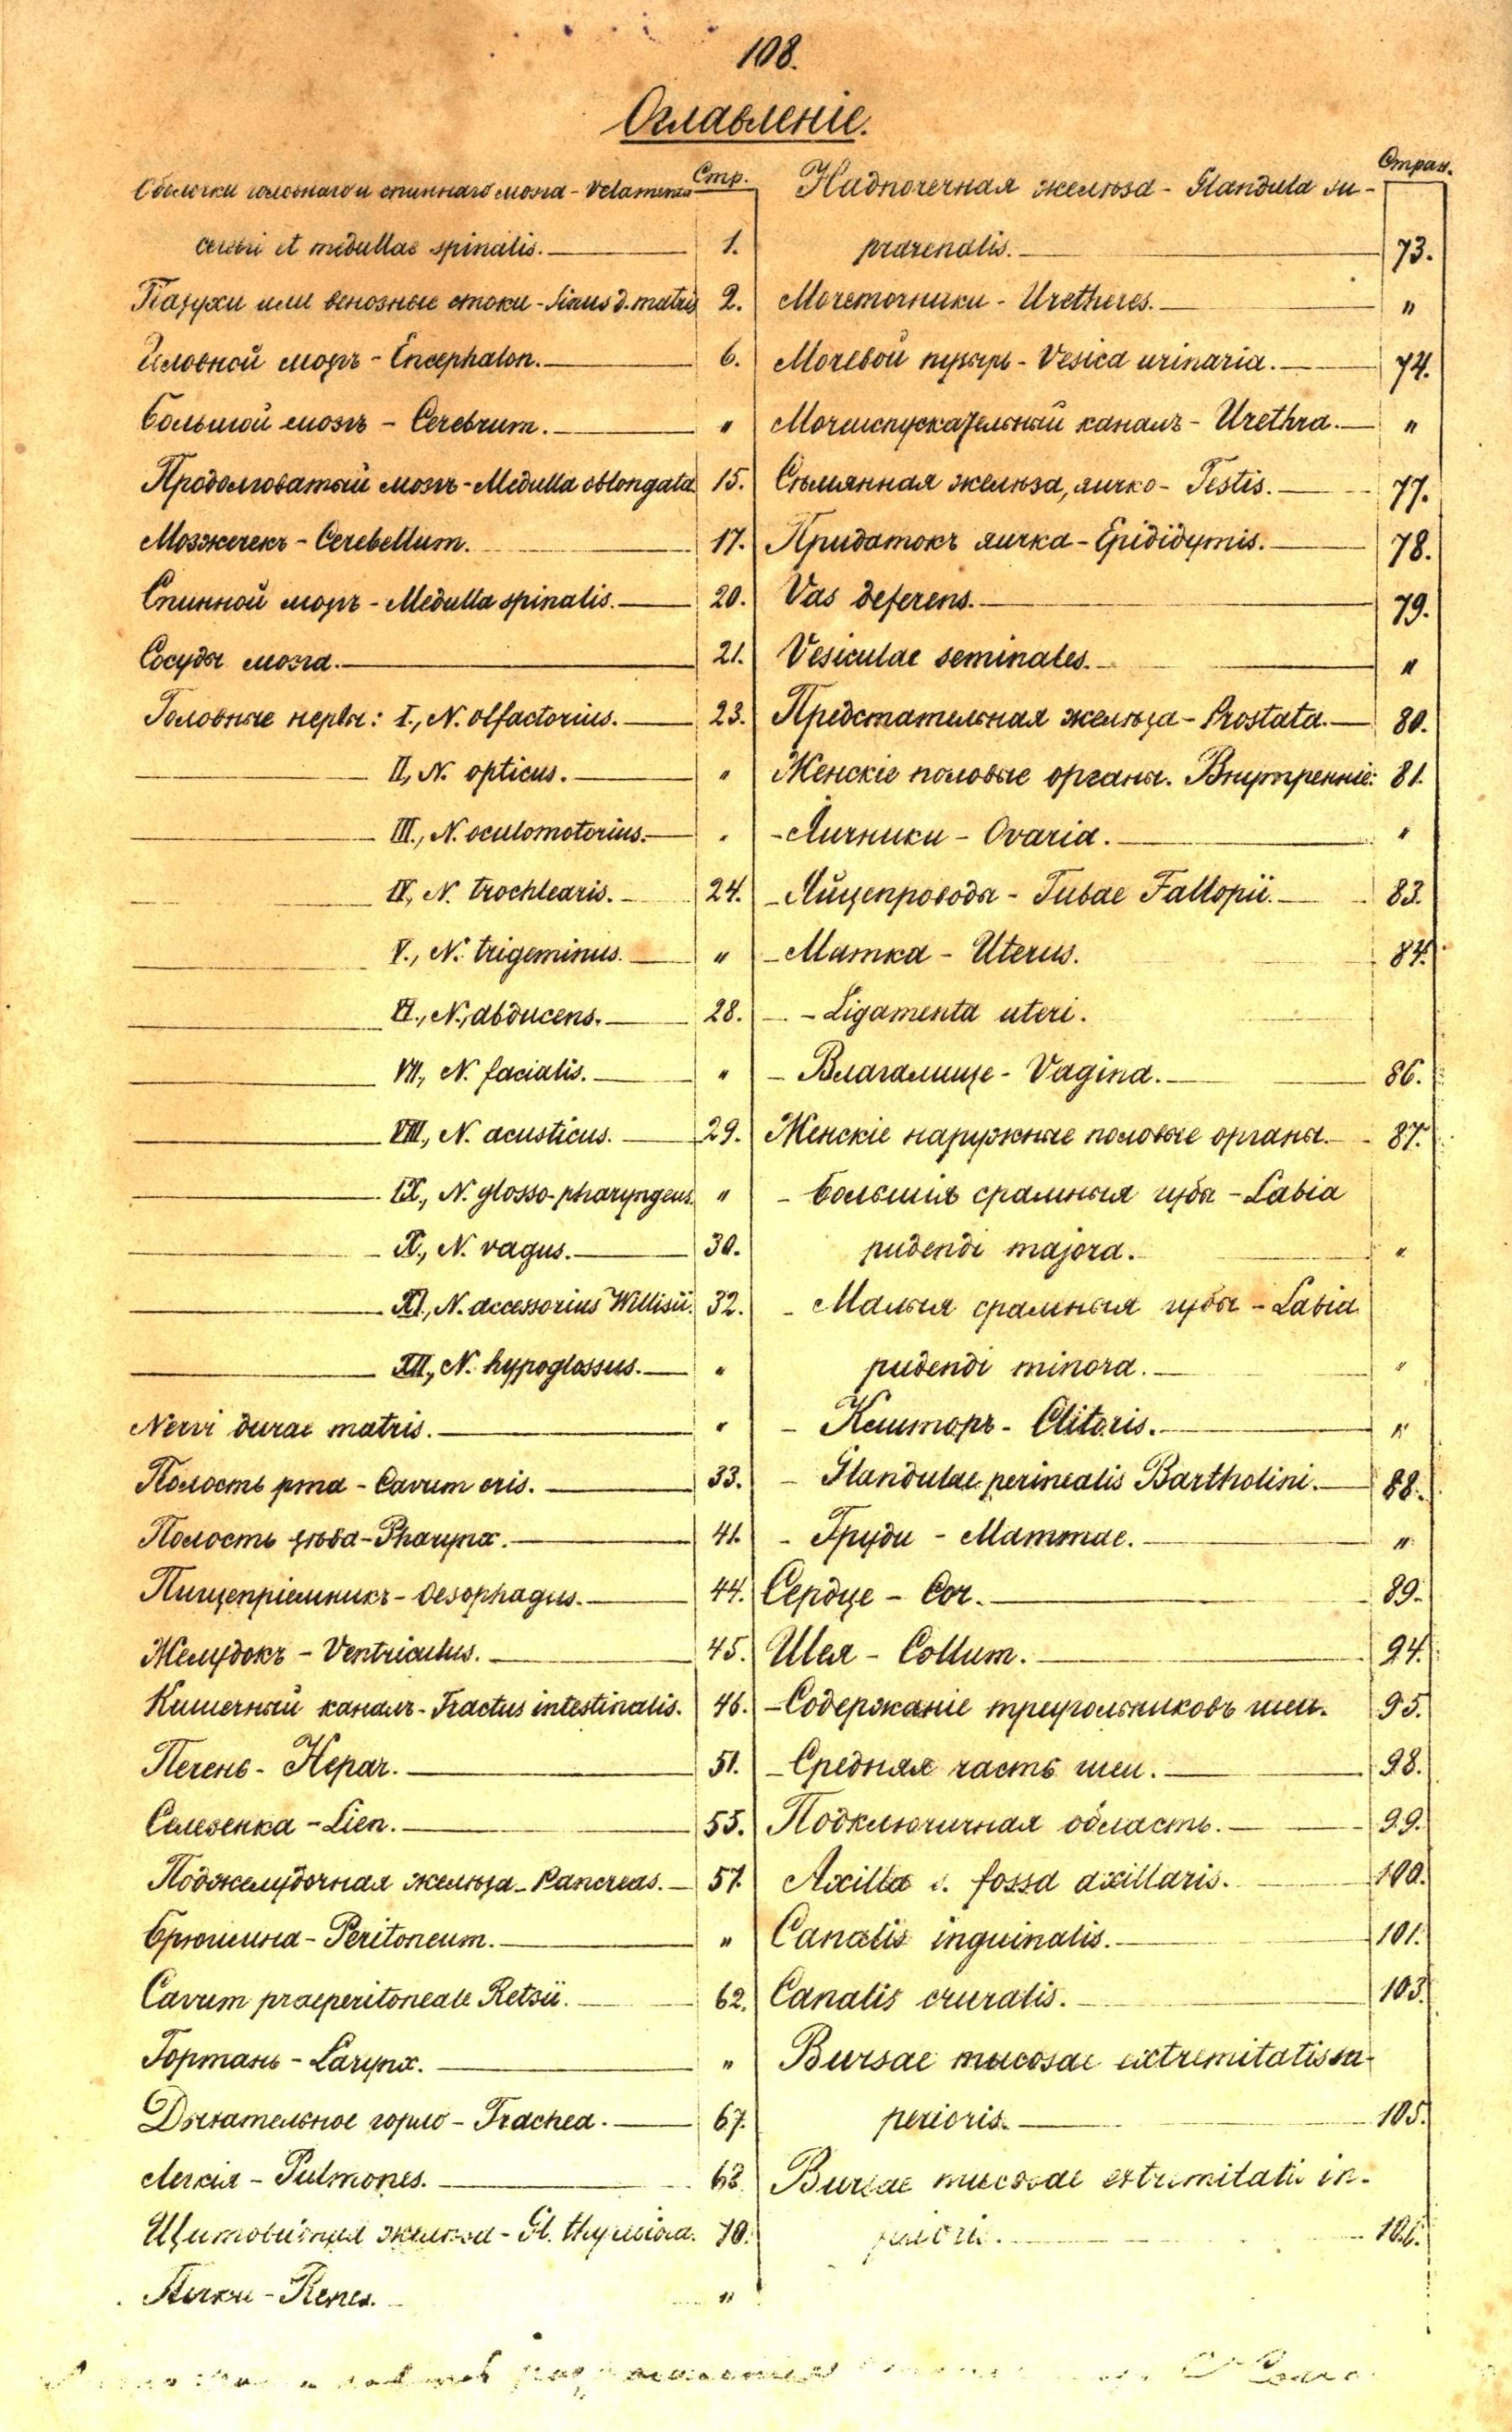 108.
Оглавленіе.
Стр.
Оболочки головнаго и спиннаго мозга - Velamenta
cerebri et medullae spinalis. 1.
Пазухи или венозные стоки - Sinus d. matris 2.
Головной мозгъ - Encephalon. 6.
Большой мозгъ - Cerebrum. "
Продолговатый мозгъ - Medulla oblongata 15.
Мозжечекъ - Cerebellum. 17.
Спинной мозгъ - Medulla spinalis. 20.
Сосуды мозга. 21.
Головные нервы: I., N. olfactorius. 23.
II, N. opticus. "
III., N. oculomotorius. "
IV, N. trochlearis. 24.
V., N. trigeminus. "
VI., N. abducens. 28.
VII, N. facialis. "
VIII., N. acusticus. 29.
IX., N. glosso-pharyngeus. "
X., N. vagus. 30.
XI., N. accessorius Willisii. 32.
XII., N. hypoglossus. "
Nervi durae matris. "
Полость рта - Cavum oris. 33.
Полость зѣва - Pharynx. 41.
Пищепріемникъ - Oesophagus. 44.
Желудокъ - Ventriculus. 45.
Кишечный каналъ - Tractus intestinalis. 46.
Печень - Hepar. 51.
Селезенка - Lien. 55.
Поджелудочная железа - Pancreas. 57.
Брюшина - Peritoneum. "
Cavum praeperitoneale Retzii. 62.
Гортань - Larynx. "
Дыхательное горло - Trachea. 67.
Легкія - Pulmones. 68.
Щитовидная железа - Gl. thyreoidea. 70.
Почки - Renes. "
Стран.
Надпочечная желѣза - Glandula su-
prarenalis. 73.
Мочеточники - Uretheres. "
Мочевой пузырь - Vesica urinaria. 74.
Мочеиспускательный каналъ - Urethra. "
Сѣмянная желѣза, яичко - Testis. 77.
Придатокъ яичка - Epididymis. 78.
Vas deferens. 79.
Vesiculae seminales. "
Предстательная желѣза - Prostata. 80.
Женскіе половые органы. Внутренніе: 81.
- Яичники - Ovaria. "
- Яйцепроводы - Tubae Fallopii. 83.
- Матка - Uterus. 84.
- - Ligamenta uteri.
- Влагалище - Vagina. 86.
Женскіе наружные половые органы. 87.
- Большія срамныя губы - Labia
pudendi majora. "
- Малыя срамныя губы - Labia
pudendi minora. "
- Клиторъ - Clitoris. "
- Glandulae perinealis Bartholini. 88.
- Груди - Mammae. "
Сердце - Cor. 89.
Шея - Collum. 94.
- Содержаніе треугольниковъ шеи. 95.
- Средняя часть шеи. 98.
Подключичная область. 99.
Axilla s. fossa axillaris. 100.
Canalis inguinalis. 101.
Canalis cruralis. 103.
Bursae mucosae extremitatis su-
perioris. 105.
Bursae mucosae extremitatis in-
106.